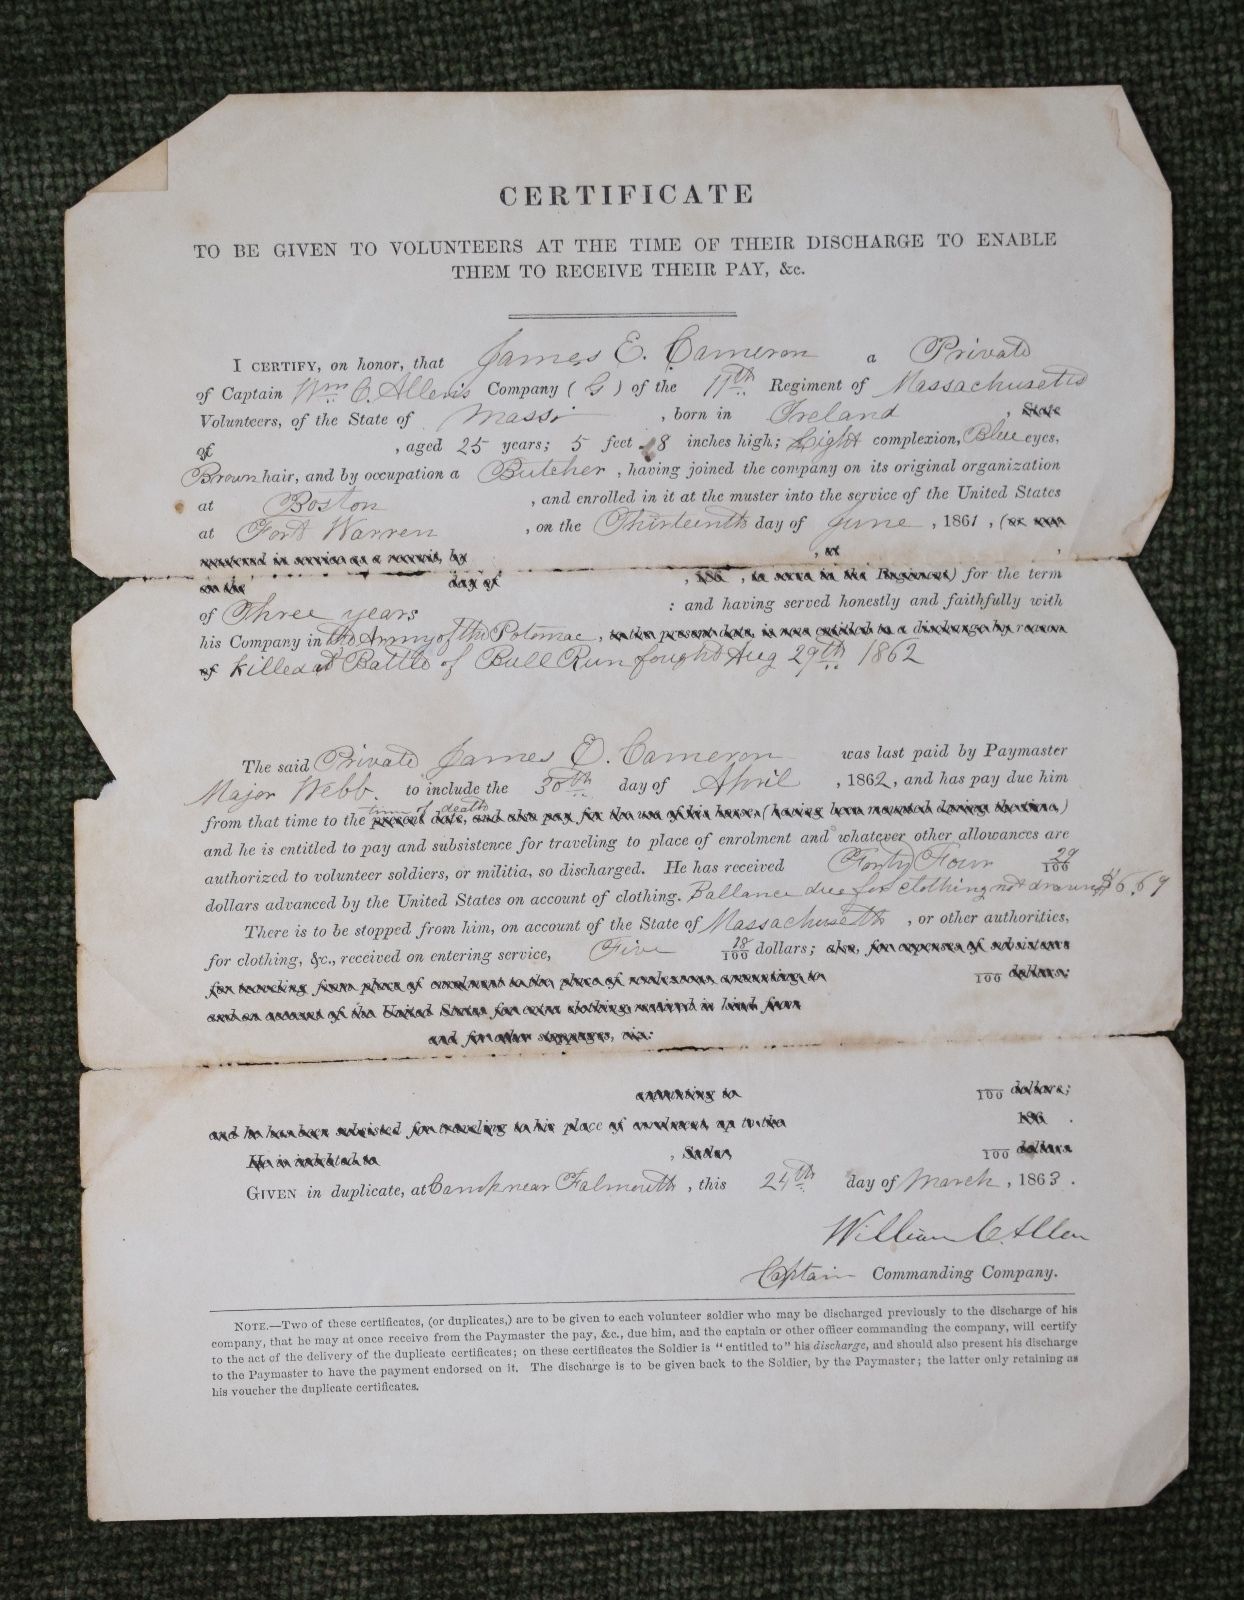 CERTIFICATE
TO BE GIVEN TO VOLUNTEERS AT THE TIME OF THEIR DISCHARGE TO ENABLE
THEM TO RECEIVE THEIR PAY, &c.
I CERTIFY, on honor, that James E. Cameron a Private
of Captain Wm C. Allen's Company ( G ) of the 11th Regiment of Massachusetts
Volunteers, of the State of Mass , born in Ireland , State
of , aged 25 years; 5 feet 8 inches high; Light complexion, Blue eyes,
Brown hair, and by occupation a Butcher , having joined the company on its original organization
at Boston , and enrolled in it at the muster into the service of the United States
at Fort Warren , on the Thirteenth day of June , 1861 , (or was
mustered in service as a recruit, by , at ,
on the day of , 186 , to serve in the Regiment) for the term
of Three years : and having served honestly and faithfully with
his Company in the Army of the Potomac , to the present date, is now entitled to a discharge by reason
of Killed at Battle of Bull Run fought Aug 29th 1862
The said Private James E. Cameron was last paid by Paymaster
Major Webb. to include the 30th day of April , 1862, and has pay due him
time of death
from that time to the present date, and also pay for the use of his horse (having been mounted during the time,)
and he is entitled to pay and subsistence for traveling to place of enrolment and whatever other allowances are
authorized to volunteer soldiers, or militia, so discharged. He has received Forty Four 29/100
dollars advanced by the United States on account of clothing. Ballance due for clothing not drawn $6.69
There is to be stopped from him, on account of the State of Massachusetts , or other authorities,
for clothing, &c., received on entering service, Five 18/100 dollars; also, for expenses of subsistence
for traveling from place of enrolment to the place of rendezvous, amounting to /100 dollars;
and on account of the United States for extra clothing received in kind from
and for other stoppages, viz:
amounting to /100 dollars;
and he has been subsisted for traveling to his place of enrolment, up to the 186 .
He is indebted to , Sutler, /100 dollars
GIVEN in duplicate, at Camp near Falmouth , this 24th day of March , 1863 .
William C. Allen
Captain Commanding Company.
NOTE.—Two of these certificates, (or duplicates,) are to be given to each volunteer soldier who may be discharged previously to the discharge of his
company, that he may at once receive from the Paymaster the pay, &c., due him, and the captain or other officer commanding the company, will certify
to the act of the delivery of the duplicate certificates; on these certificates the Soldier is "entitled to" his discharge, and should also present his discharge
to the Paymaster to have the payment endorsed on it. The discharge is to be given back to the Soldier, by the Paymaster; the latter only retaining as
his voucher the duplicate certificates.